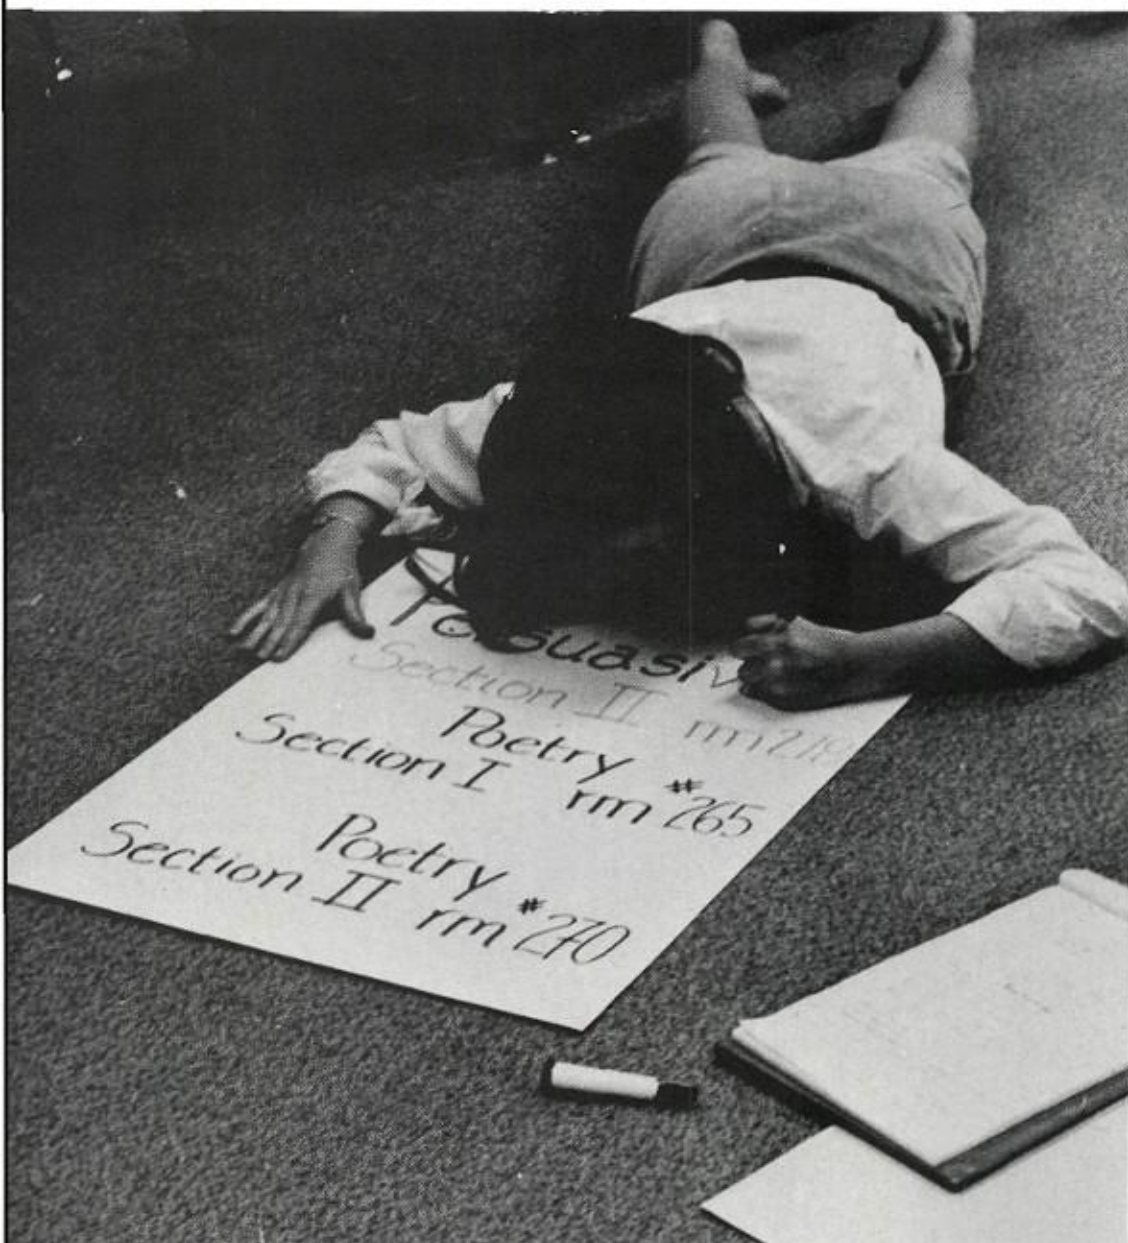 Persuasiv
Section II rm
Poetry
Section I rm #265
Poetry
Section II rm #270